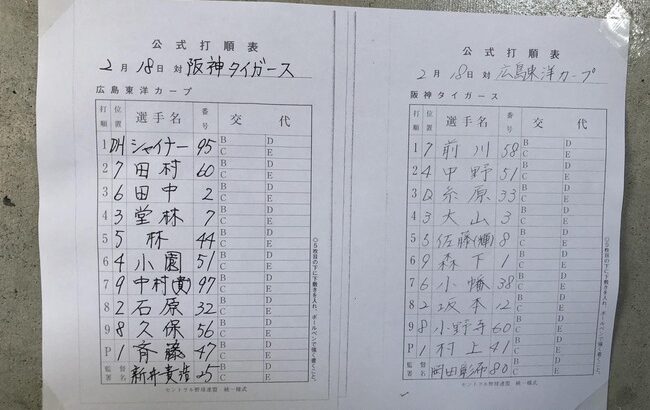 公式打順表
2月18日対阪神タイガース
広島東洋カープ
打順 位置 選手名 番号 交代
1 DH シャイナー 95 B D C E
2 7 田村 60 B D C E
3 6 田中 2 B D C E
4 3 堂林 7 B D C E
5 5 林 44 B D C E
6 4 小園 51 B D C E
7 9 中村(貴) 97 B D C E
8 2 石原 32 B D C E
9 8 久保 56 B D C E
P 1 斉藤 47 B D C E
監督署名 新井貴浩 25
セントラル野球連盟 統一様式
○5枚目の下に下敷きを入れ、ボールペンで強く書くこと。
公式打順表
2月18日対広島東洋カープ
阪神タイガース
打順 位置 選手名 番号 交代
1 7 前川 58 B D C E
2 4 中野 51 B D C E
3 D 糸原 33 B D C E
4 3 大山 3 B D C E
5 5 佐藤(輝) 8 B D C E
6 9 森下 1 B D C E
7 6 小幡 38 B D C E
8 2 坂本 12 B D C E
9 8 小野寺 60 B D C E
P 1 村上 41 B D C E
監督署名 岡田彰布 80
セントラル野球連盟 統一様式
○5枚目の下に下敷きを入れ、ボールペンで強く書くこと。